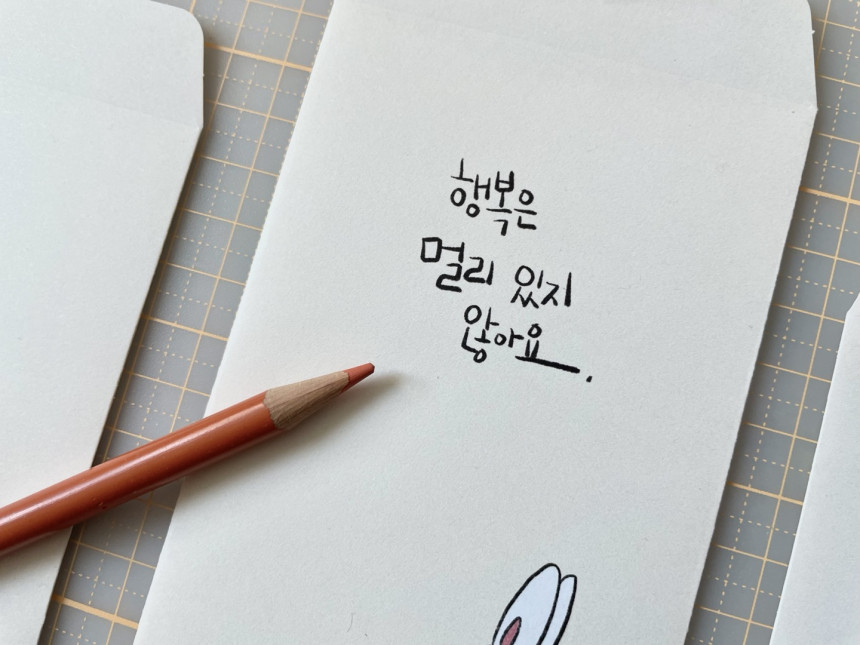 행복은
멀리 있지
않아요.